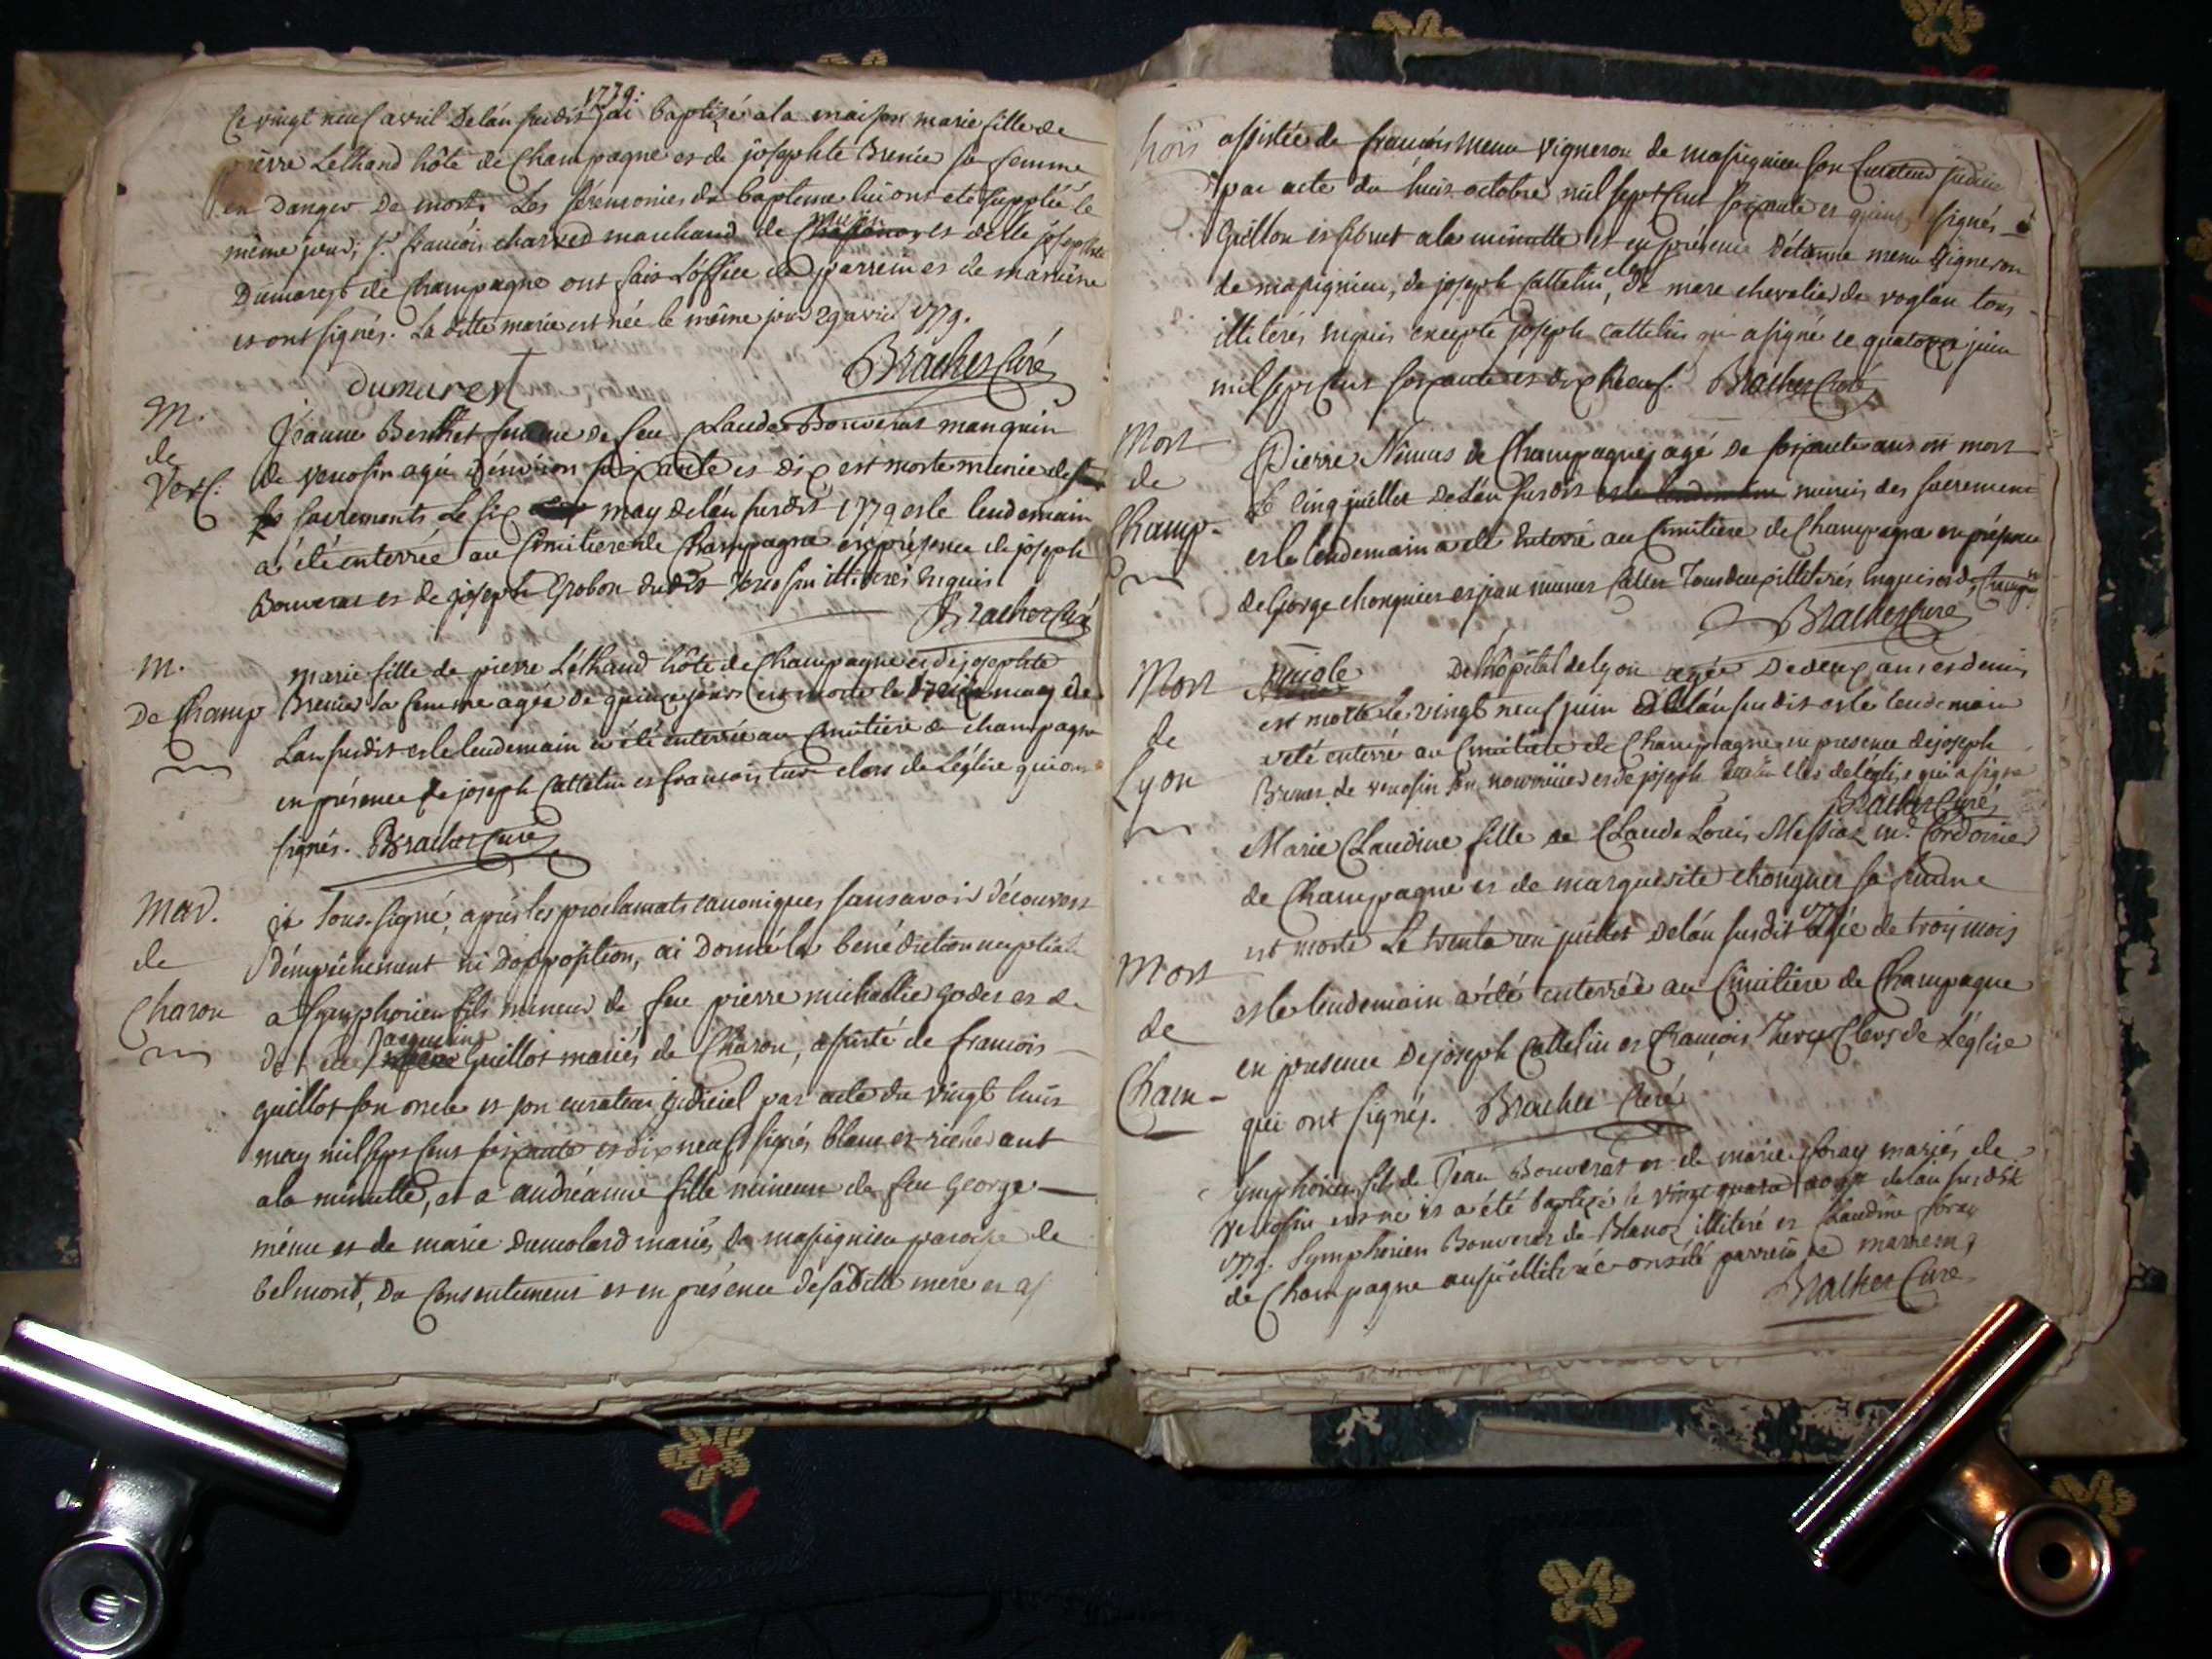 1779.
Le vingt neuf avril de lán susdit j'ai baptisé a la maison marie fille de
pierre Lethaud hôte de Champagne et de josephte Brenier sa femme
en danger de mort. Les sérémonies du bapteme lui ont eté supplée le
même jour; sr. francois charvet marchand de et de lle josephte
Dumarest de Champagne ont fait L'office de parrein et de marreine
et ont signés. La ditte marie est née le même jour 29 avril 1779.
Dumarest Brachet Curé
M. de
Jeanne Berthet femme de feu Claude Bouverat manguin
de venosin agée d'environ soixante et dix est morte munie de
sacrements Le six may de lán susdit 1779 et le lendemain
a été enterrée au Cimitiere de Champagne en présence de joseph
Bouverat et de joseph Grobon dudit venosin illiterés enquis
Brachet Curé
M.
De Champ
marie fille de pierre Léthaud hôte de Champagne et de josephte
Brenier sa femme agée de quinze jours est morte le may de
Lan susdit et le lendemain a été enterrée au Cimitiere de champagne
en présence de joseph Cattelin et francois clers de L'église qui ont
signés. Brachet Curé
Mar.
de
Charon
je sous-signé, après les proclamats canoniques sans avoir découvert
d'émpêchement ni d'opposition, ai donné la bénédiction nuptiale
a symphorien fils mineur de feu pierre michallie godet et de
jacqueline Guillot mariés de Charon, assisté de francois
guillot son oncle et son curateur judiciel par acte du vingt huit
may mil sept cent soixante et dix neuf signés blanc et
a la minutte, et a andréanne fille mineure de feu george
même et de marie dumolard mariés de masignieu paroisse de
belmont, du consentement et en présence de sa ditte mere et as
assistée de francois menu vigneron de masignieu son Curateur judiciel
par acte du huit octobre mil sept cent soixante et quinze signés
Guillon et sibuet a la minutte et en présence détienne menu vigneron
de masignieu, de joseph Cattelin clerc, de mare chevalier de voglan tous
illiterés enquis excepté joseph cattelin qui a signé ce quatorze juin
mil sept cent soixante et dix neuf. Brachet Curé
Mort
de
Champ-
Pierre Nemus de Champagne, agé de soixante ans est mort
Le cinq juillet de lán susdit munis des sacrements
et le lendemain a été enterré au Cimitiere de Champagne en présence
de George chonguier et jean tous deux illiterés enquis et de Champagne
Brachet Curé
Mort
de
Lyon
De L'hôpital de lyon agée de deux ans et demis
est morte le vingt neuf juin de lán susdit et le lendemain
a été enterré au Cimitiere de Champagne en presence de joseph
Brunet de venosin son nourricier et de joseph clers de léglise qui a signé
Brachet Curé
Mort
de
Cham-
Marie Claudine fille de Claude Louis Messiaz me. Cordonier
de Champagne et de marguerite chonguer sa femme
est morte Le trente un juillet de lán susdit 1779 agée de trois mois
et le lendemain a été enterrée au Cimitiere de Champagne
en presence de joseph Cattelin et francois clers de L'église
qui ont signés. Brachet Curé
Symphorien fils de Jean Bouverat et de marie foray mariés de
venosin est né et a été baptisé le vingt quatre aout de lán susdit
1779. Symphorien Bouverat de Blanoz illiteré et Claudine foray
de Champagne aussi illiterée ont été parrein et marreine
Brachet Curé